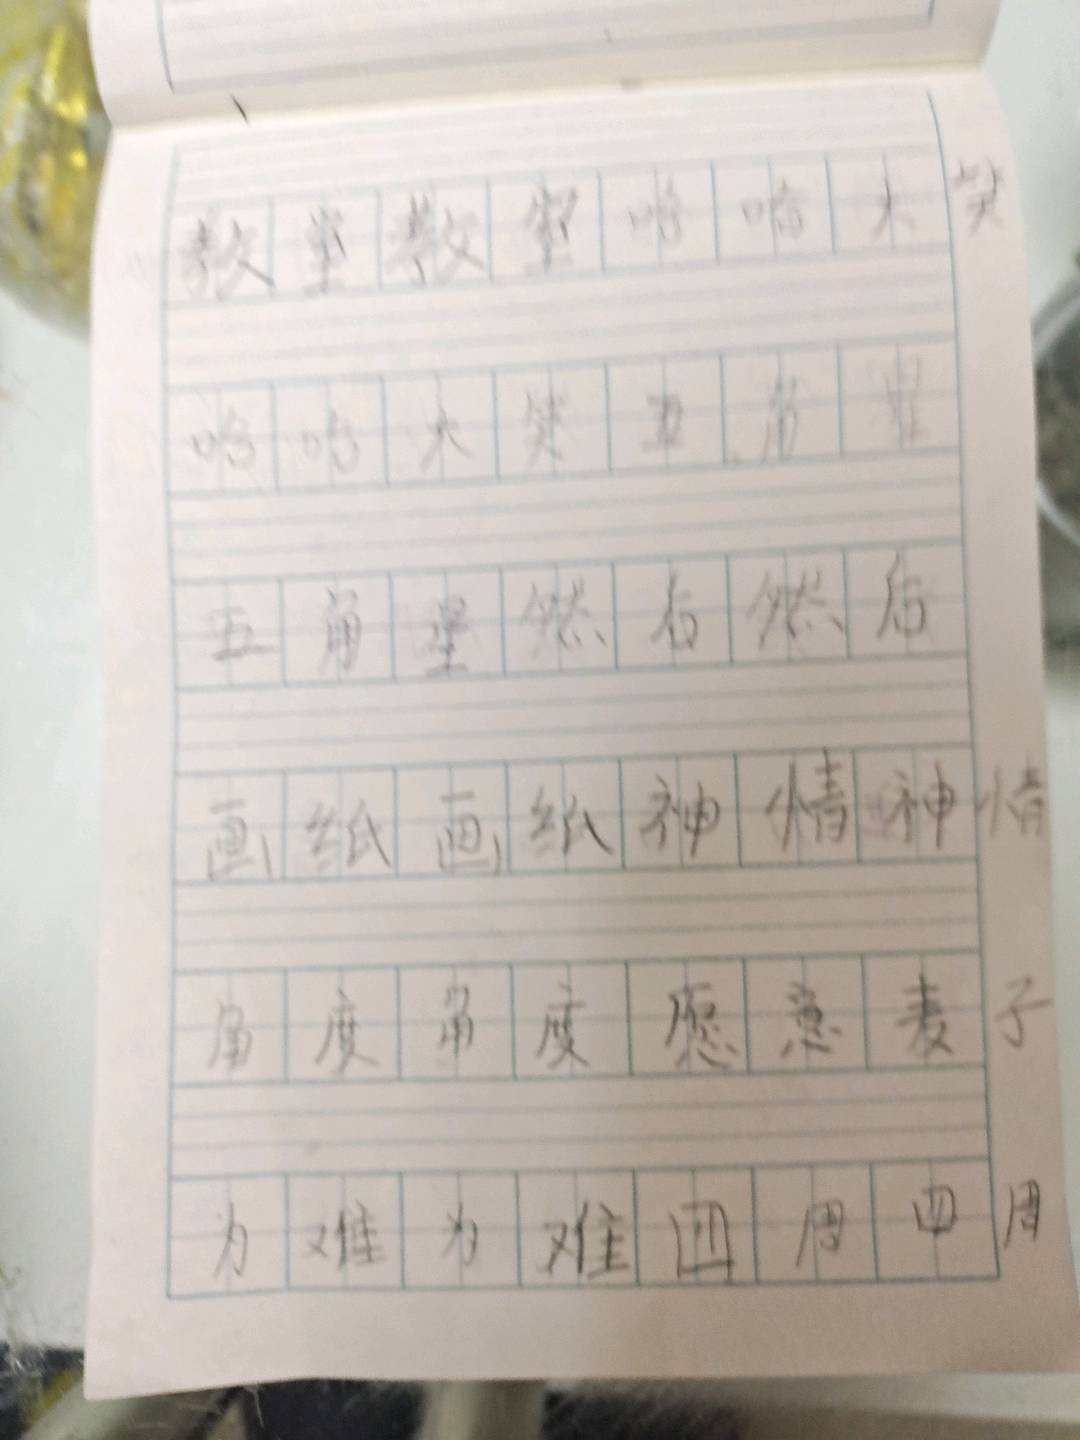 教室教室哈哈大笑
哈哈大笑五角星
五角星然后然后
画纸画纸神情神情
角度角度愿意麦子
为难为难四周四周